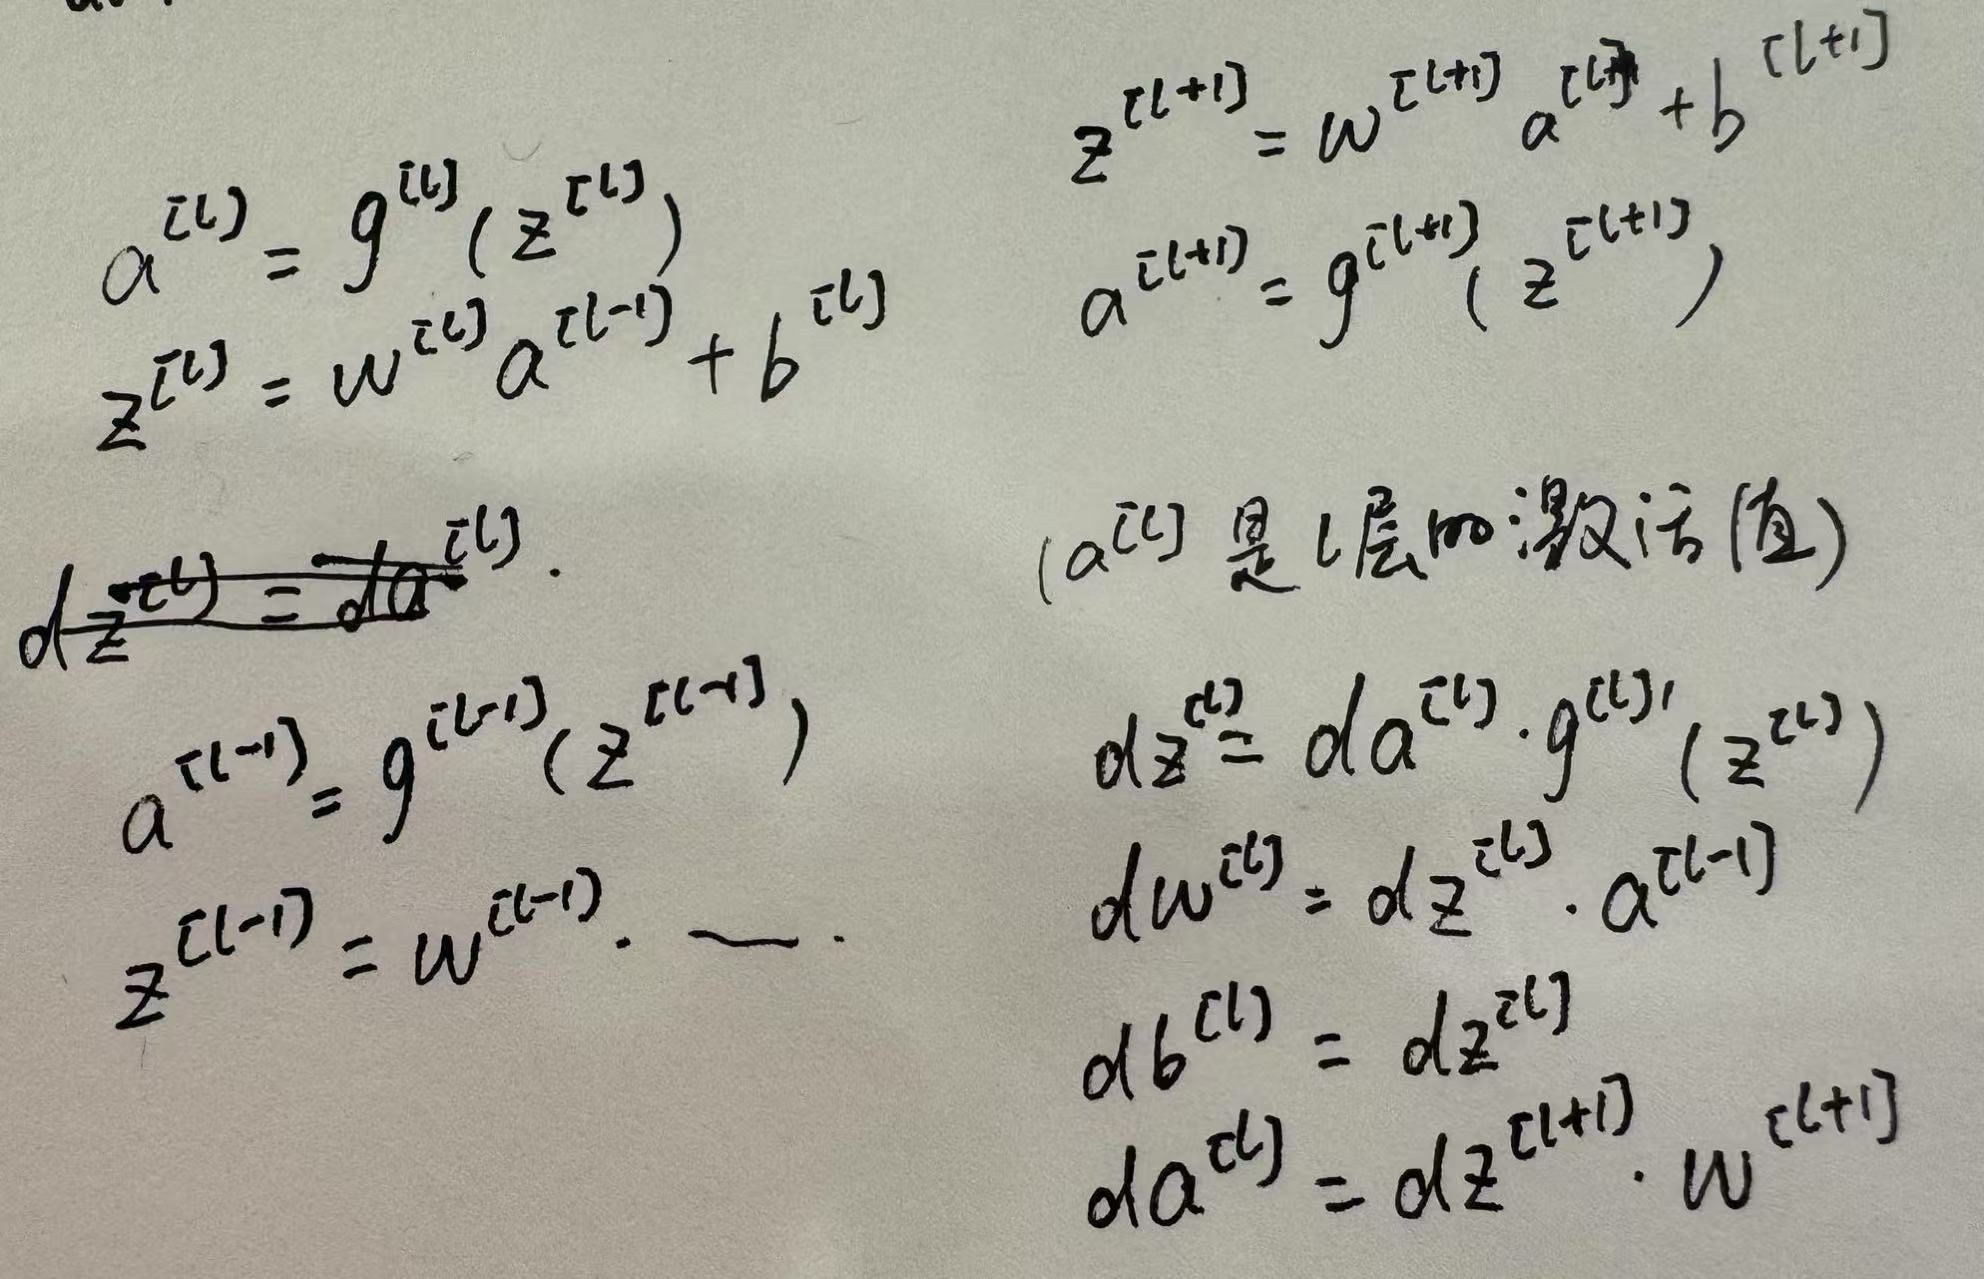 a^[l] = g^[l] (z^[l])
z^[l] = w^[l] a^[l-1] + b^[l]
dz^[l] = da^[l].
a^[l-1] = g^[l-1] (z^[l-1])
z^[l-1] = w^[l-1] · — ·
z^[l+1] = w^[l+1] a^[l] + b^[l+1]
a^[l+1] = g^[l+1] (z^[l+1])
(a^[l] 是 l层的激活值)
dz^[l] = da^[l] · g^[l]' (z^[l])
dw^[l] = dz^[l] · a^[l-1]
db^[l] = dz^[l]
da^[l] = dz^[l+1] · w^[l+1]